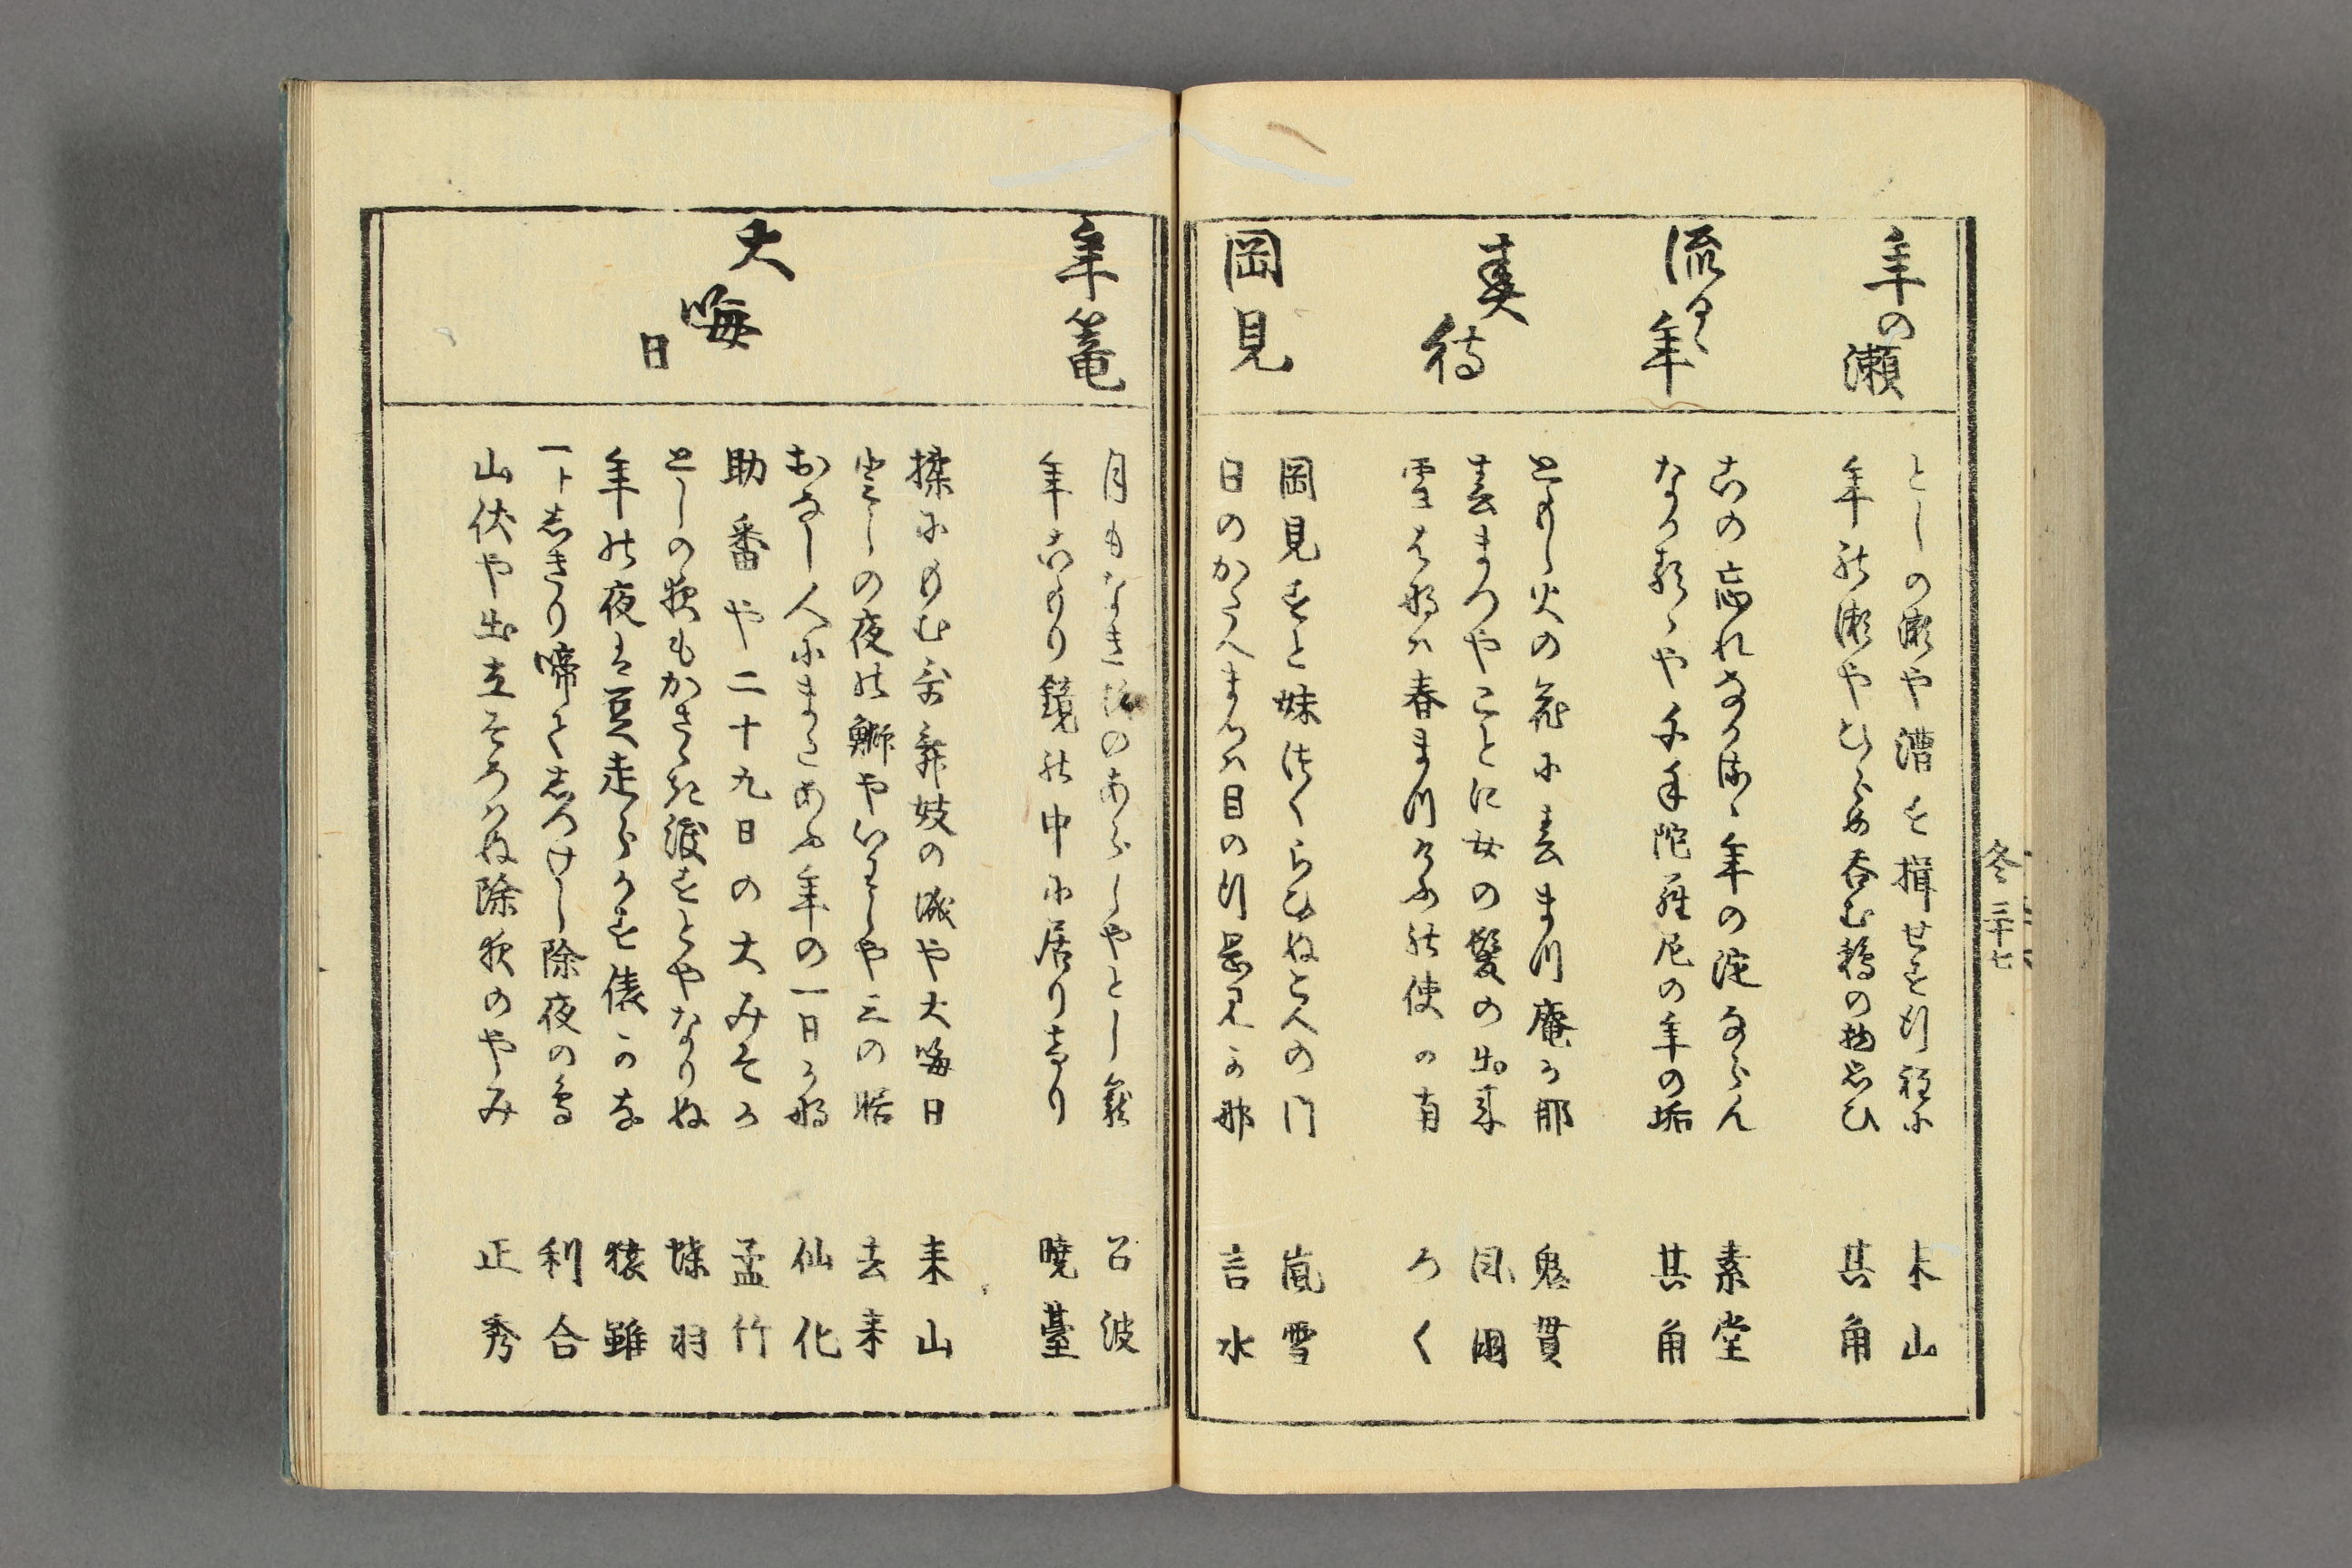 年の瀬
としの瀬や漕す揖せす行程に 来山
年の瀬やひらめ呑む鵜の物思ひ 其角
流るゝ年
古の忘れなかるゝ年の淀ならん 素堂
なかるゝや千手陀羅尼の年の垢 其角
春待
ともし火の花に春まつ庵か那 鬼貫
春まつやことに女の髪の出来
雪はなは春まつけふの使の
ろく
岡見
岡見すと妹つくらひぬ小人の門 嵐雪
日のかうへまつは目の行岡見か那 言水
冬 三十七
年篭
月もなき杉のあらしやとし籠 召波
年こもり鏡の中に居りけり 暁薹
大晦日
揉にもむ歌舞妓の城や大晦日 来山
としの夜の鰤やいわしや三の膳 去来
おなし人にまたあふ年の一日かな 仙化
助番や二十九日の大みそか 孟竹
としの夜もかさゝぬ渡すとやなりぬ 蝶羽
年の夜は豆走らかす俵かな 猿雖
一トしきり啼てしつけし除夜の 利合
山伏や出立そろはぬ除夜のやみ 正秀